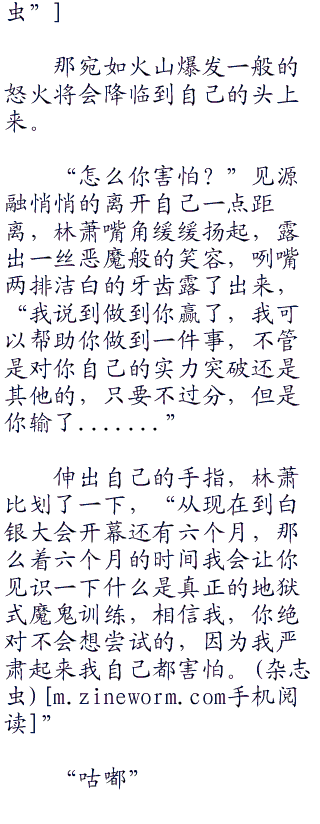 虫”]
那宛如火山爆发一般的
怒火将会降临到自己的头上
来。
“怎么你害怕？”见源
融悄悄的离开自己一点距
离，林萧嘴角缓缓扬起，露
出一丝恶魔般的笑容，咧嘴
两排洁白的牙齿露了出来，
“我说到做到你赢了，我可
以帮助你做到一件事，不管
是对你自己的实力突破还是
其他的，只要不过分，但是
你输了.......”
伸出自己的手指，林萧
比划了一下，“从现在到白
银大会开幕还有六个月，那
么着六个月的时间我会让你
见识一下什么是真正的地狱
式魔鬼训练，相信我，你绝
对不会想尝试的，因为我严
肃起来我自己都害怕。(杂志
虫)[m.zineworm.com手机阅
读]”
“咕嘟”